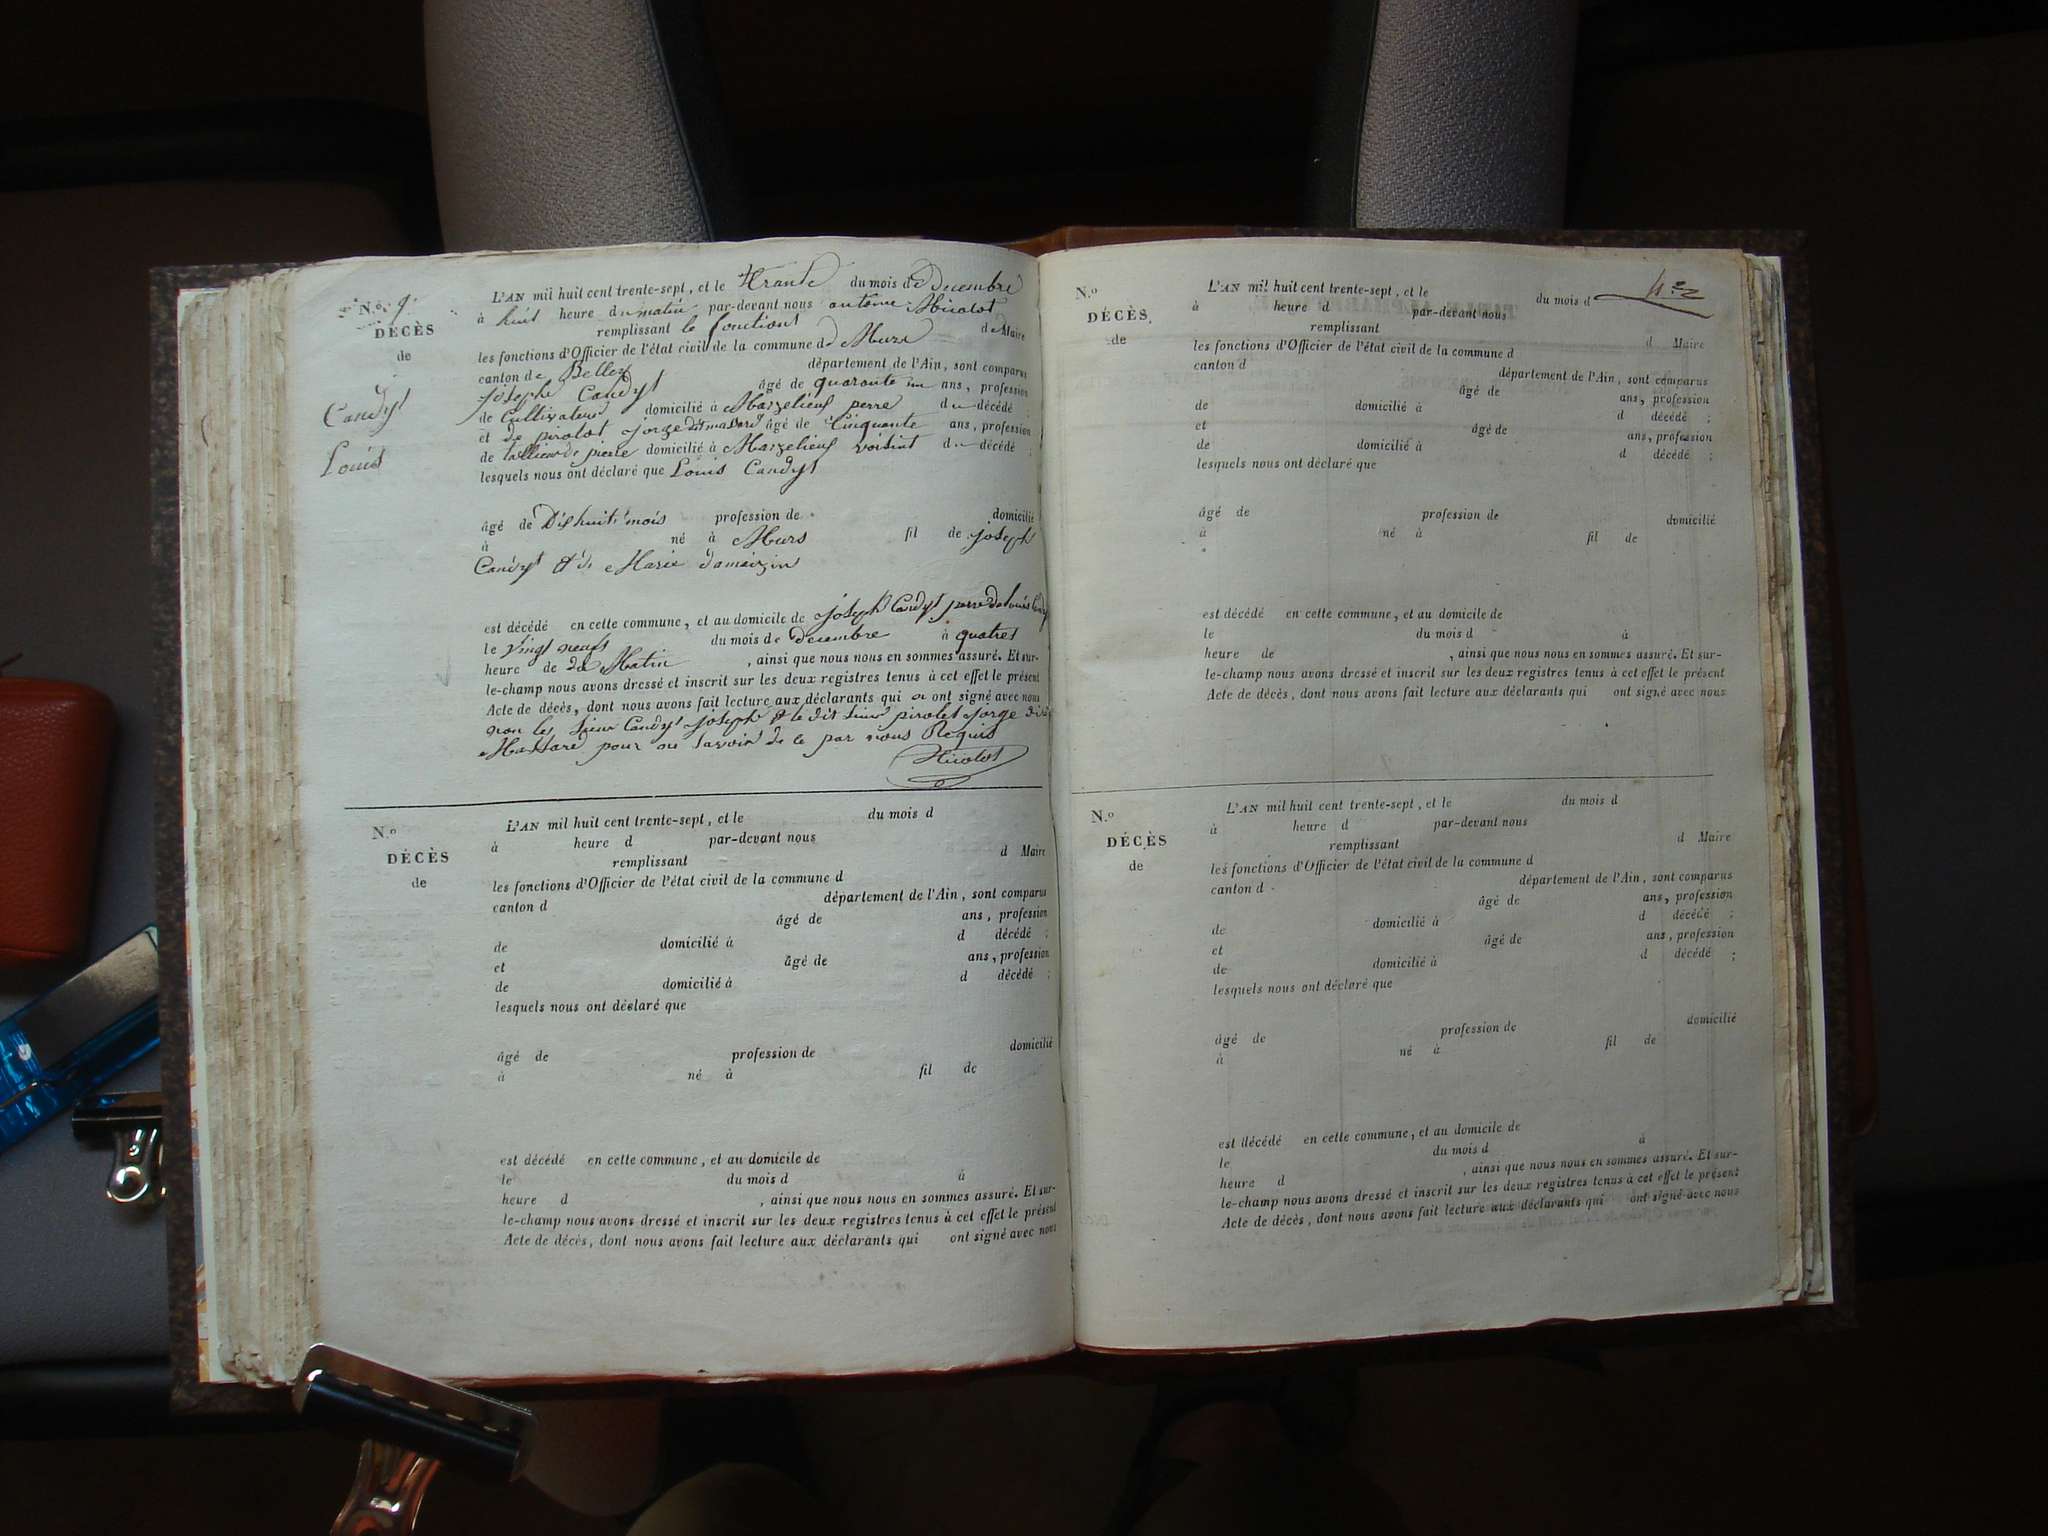 N.º 9.
DÉCÈS
de
Candy
Louis
L'AN mil huit cent trente-sept, et le trante du mois de Decembre
à huit heure du matin par-devant nous antoine Nicolot
remplissant le fonctions de Maire
les fonctions d'Officier de l'état civil de la commune de Murs
canton de Belley département de l'Ain, sont comparus
joseph Candy âgé de quarante un ans, profession
de Cultivateur domicilié à perre du décédé ;
et de pirolot jorge dit massard âgé de Cinquante ans, profession
de tallieur de pierre domicilié à voisint du décédé ;
lesquels nous ont déclaré que Louis Candy
âgé de Dishuit mois profession de domicilié
à né à Murs fil de joseph
Candy et de Marie damaizin
est décédé en cette commune, et au domicile de joseph Candy perre de louis Candy
le vingt neufs du mois de decembre à quatres
heure de du Matin , ainsi que nous nous en sommes assuré. Et sur-
le-champ nous avons dressé et inscrit sur les deux registres tenus à cet effet le présent
Acte de décès, dont nous avons fait lecture aux déclarants qui ont signé avec nous
non les sieur Candy joseph et le dit sieur pirolot jorge dit
Massard pour ne savoir de ce par nous Requis
Nicolot
N.º
DÉCÈS
de
L'AN mil huit cent trente-sept, et le du mois d
à heure d par-devant nous
remplissant d Maire
les fonctions d'Officier de l'état civil de la commune d
canton d département de l'Ain, sont comparus
âgé de ans, profession
de domicilié à d décédé ;
et âgé de ans, profession
de domicilié à d décédé ;
lesquels nous ont déclaré que
âgé de profession de domicilié
à né à fil de
est décédé en cette commune, et au domicile de
le du mois d à
heure d , ainsi que nous nous en sommes assuré. Et sur-
le-champ nous avons dressé et inscrit sur les deux registres tenus à cet effet le présent
Acte de décès, dont nous avons fait lecture aux déclarants qui ont signé avec nous
N.º
DÉCÈS
de
L'AN mil huit cent trente-sept, et le du mois d
à heure d par-devant nous
remplissant d Maire
les fonctions d'Officier de l'état civil de la commune d
canton d département de l'Ain, sont comparus
âgé de ans, profession
de domicilié à d décédé ;
et âgé de ans, profession
de domicilié à d décédé ;
lesquels nous ont déclaré que
âgé de profession de domicilié
à né à fil de
est décédé en cette commune, et au domicile de
le du mois d à
heure de , ainsi que nous nous en sommes assuré. Et sur-
le-champ nous avons dressé et inscrit sur les deux registres tenus à cet effet le présent
Acte de décès, dont nous avons fait lecture aux déclarants qui ont signé avec nous
N.º
DÉCÈS
de
L'AN mil huit cent trente-sept, et le du mois d
à heure d par-devant nous
remplissant d Maire
les fonctions d'Officier de l'état civil de la commune d
canton d département de l'Ain, sont comparus
âgé de ans, profession
de domicilié à d décédé ;
et âgé de ans, profession
de domicilié à d décédé ;
lesquels nous ont déclaré que
âgé de profession de domicilié
à né à fil de
est décédé en cette commune, et au domicile de
le du mois d à
heure d , ainsi que nous nous en sommes assuré. Et sur-
le-champ nous avons dressé et inscrit sur les deux registres tenus à cet effet le présent
Acte de décès, dont nous avons fait lecture aux déclarants qui ont signé avec nous